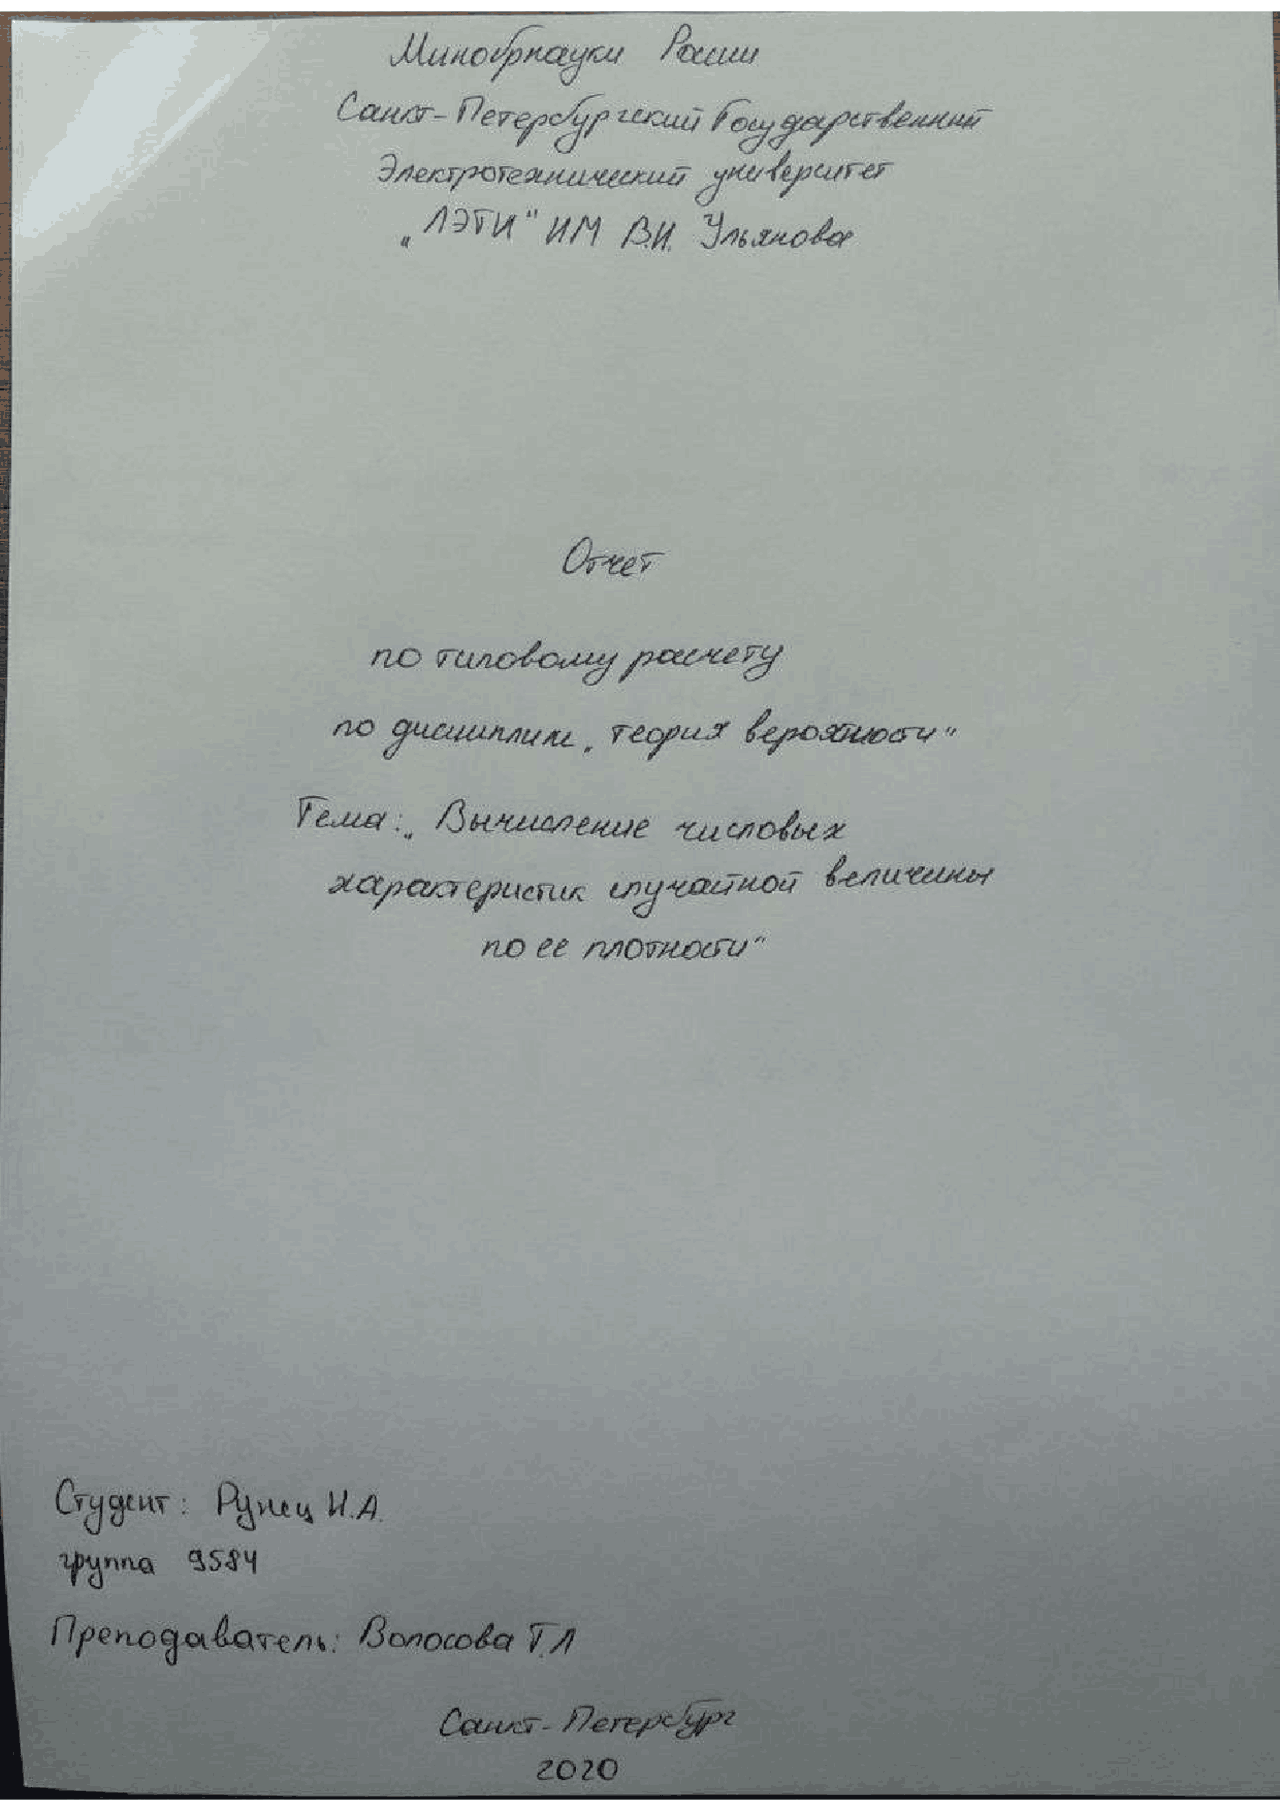 Минобрнауки России
Санкт-Петербургский Государственный
Электротехнический университет
„ЛЭТИ" ИМ В.И. Ульянова
Отчет
по типовому расчету
по дисциплине „теория вероятности"
Тема: „Вычисление числовых
характеристик случайной величины
по ее плотности"
Студент: Рунец Н.А.
группа 9584
Преподаватель: Волосова Т.Л
Санкт-Петербург
2020